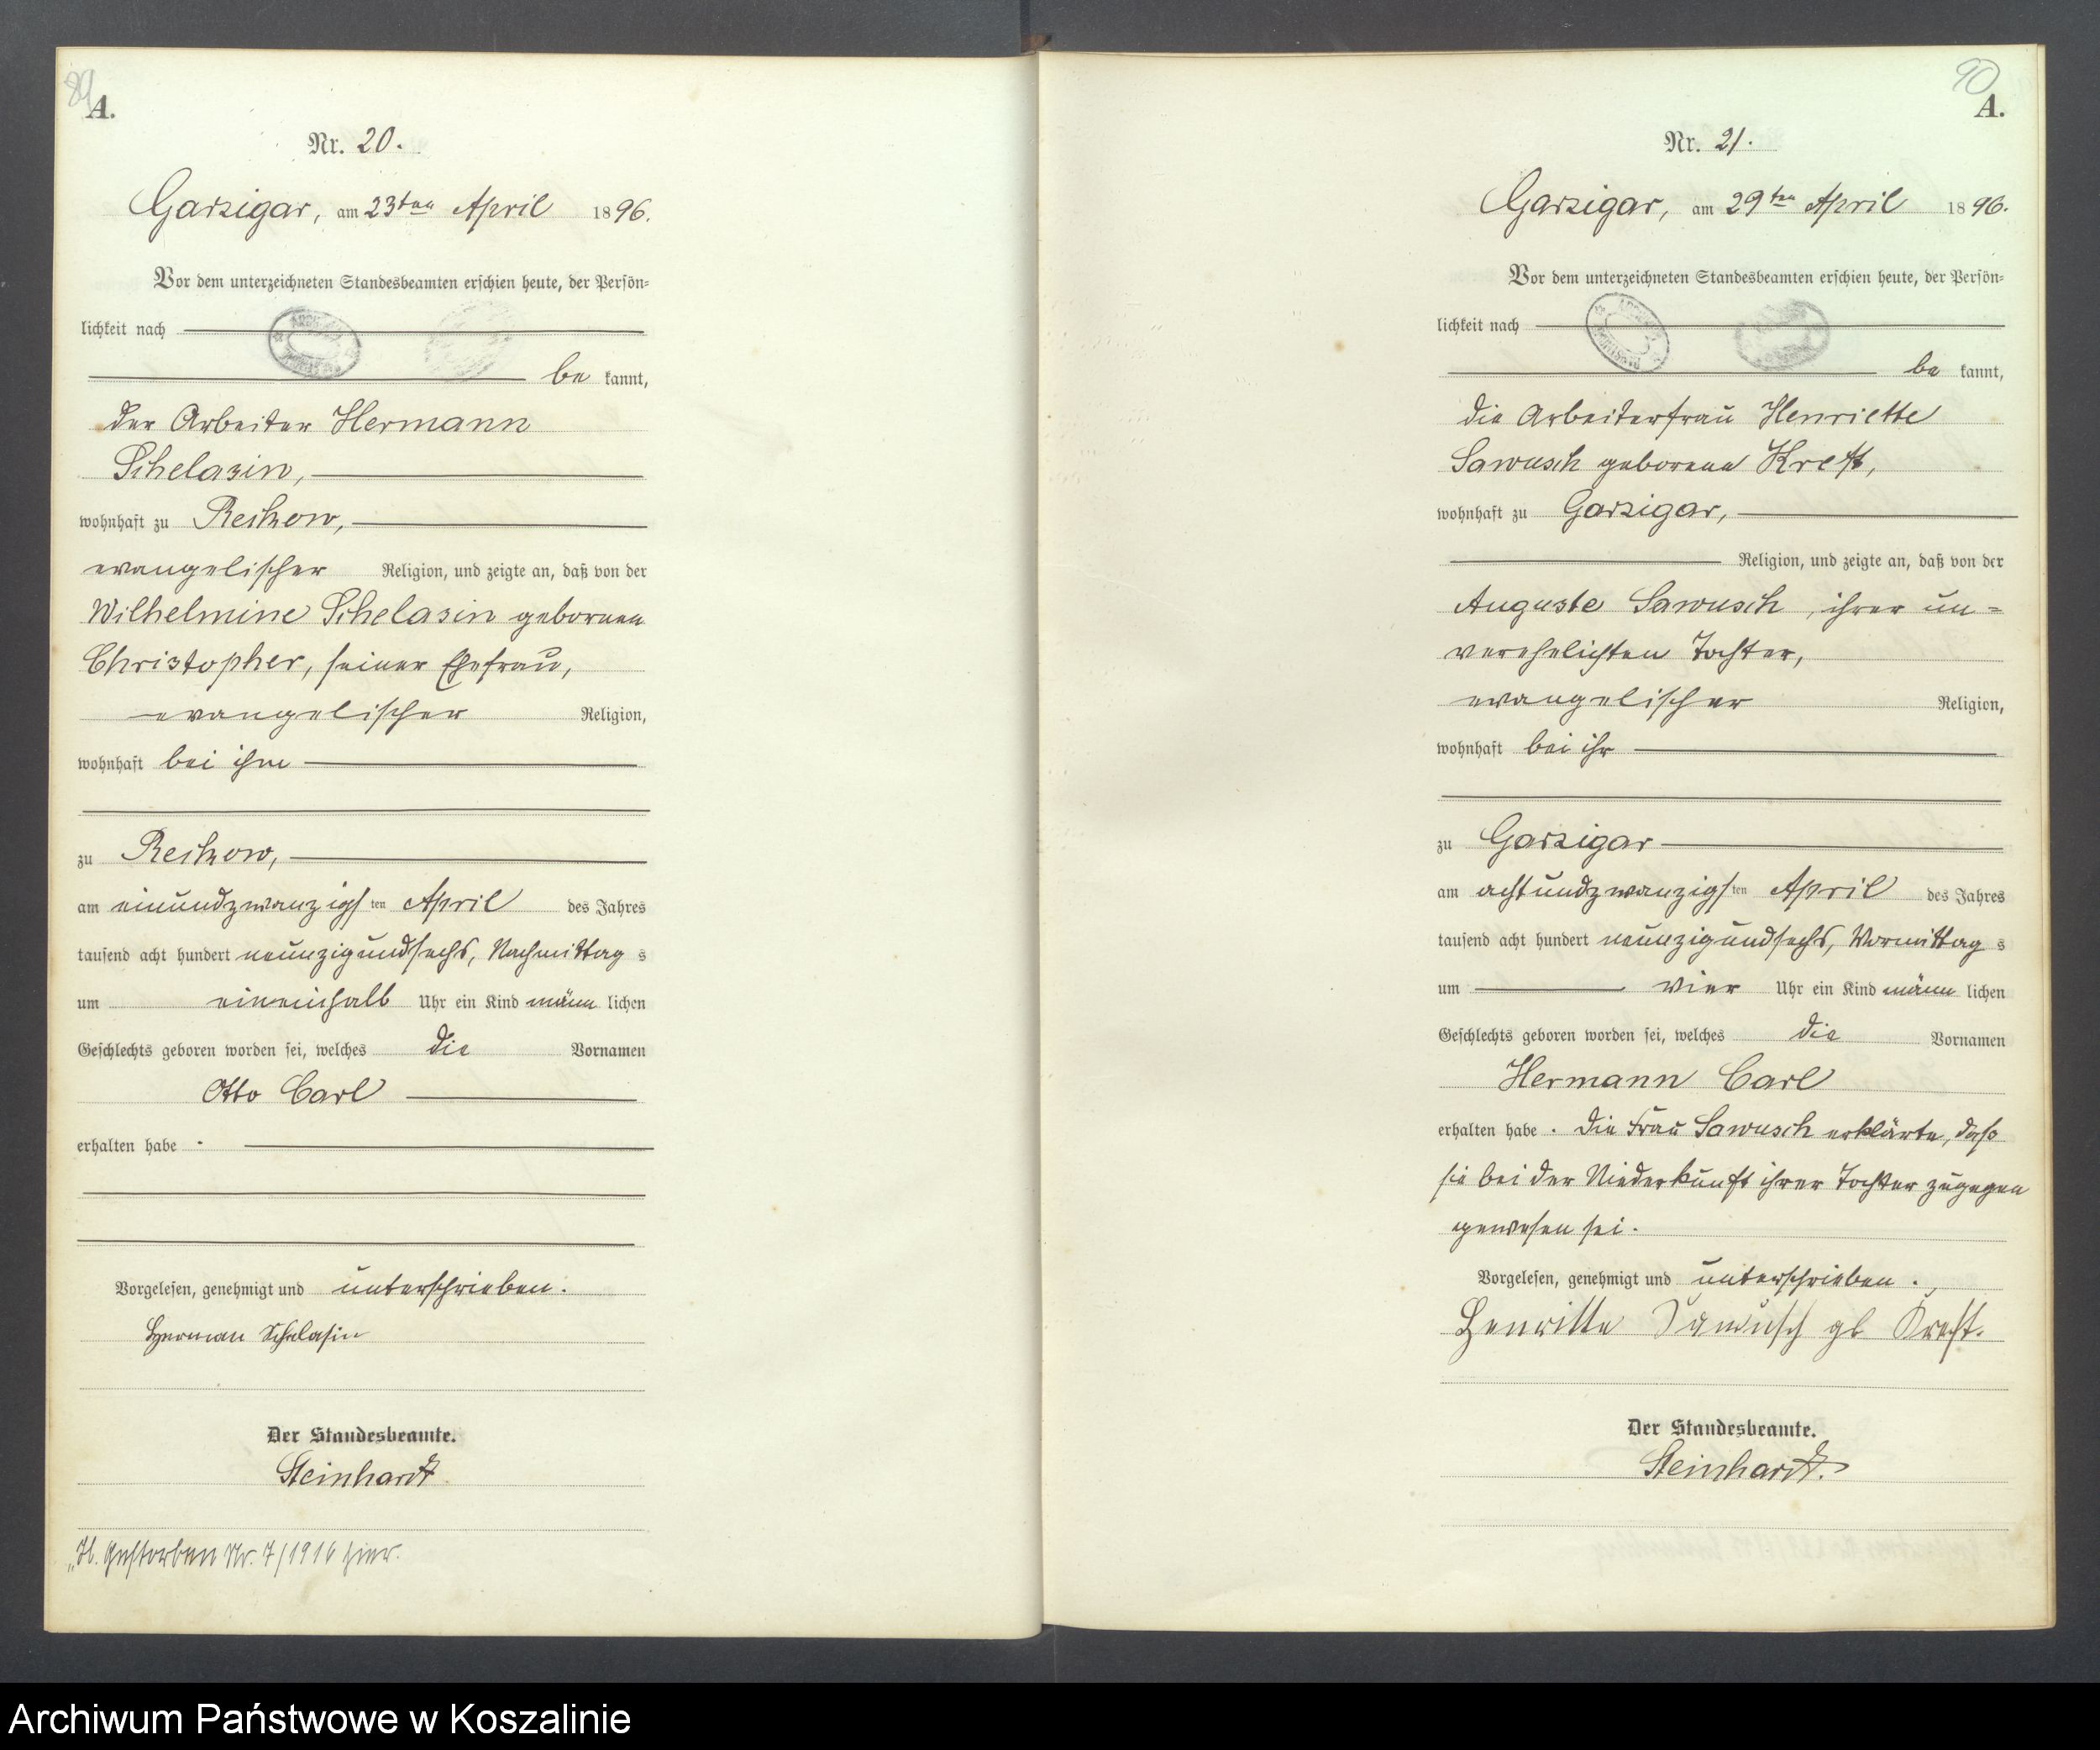 89
A.
Nr. 20.
Garzigar, am 23ten April 1896.
Vor dem unterzeichneten Standesbeamten erschien heute, der Persön-
lichkeit nach
be kannt,
der Arbeiter Hermann
Schelasin,
wohnhaft zu Reskow,
evangelischer Religion, und zeigte an, daß von der
Wilhelmine Schelasin gebornen
Christopher, seiner Ehefrau,
evangelischer Religion,
wohnhaft bei ihm
zu Reskow,
am einundzwanzigsten April des Jahres
tausend acht hundert neunzigundsechs, Nachmittag s
um eineinhalb Uhr ein Kind männ lichen
Geschlechts geboren worden sei, welches die Vornamen
Otto Carl
erhalten habe.
Vorgelesen, genehmigt und unterschrieben.
Herman Schelasin
Der Standesbeamte.
Steinhardt
Gestorben Nr. 7/1916 hier.
90
A.
Nr. 21.
Garzigar, am 29ten April 1896.
Vor dem unterzeichneten Standesbeamten erschien heute, der Persön-
lichkeit nach
be kannt,
die Arbeiterfrau Henriette
Sawusch geborene Kreft,
wohnhaft zu Garzigar,
Religion, und zeigte an, daß von der
Auguste Sawusch, ihrer un=
verehelichten Tochter,
evangelischer Religion,
wohnhaft bei ihr
zu Garzigar
am achtundzwanzigsten April des Jahres
tausend acht hundert neunzigundsechs, Vormittag s
um vier Uhr ein Kind männ lichen
Geschlechts geboren worden sei, welches die Vornamen
Hermann Carl
erhalten habe. Die Frau Sawusch erklärte, daß
sie bei der Niederkunft ihrer Tochter zugegen
gewesen sei.
Vorgelesen, genehmigt und unterschrieben.
Henritte Sawusch gb Kreft.
Der Standesbeamte.
Steinhardt.
Archiwum Państwowe w Koszalinie